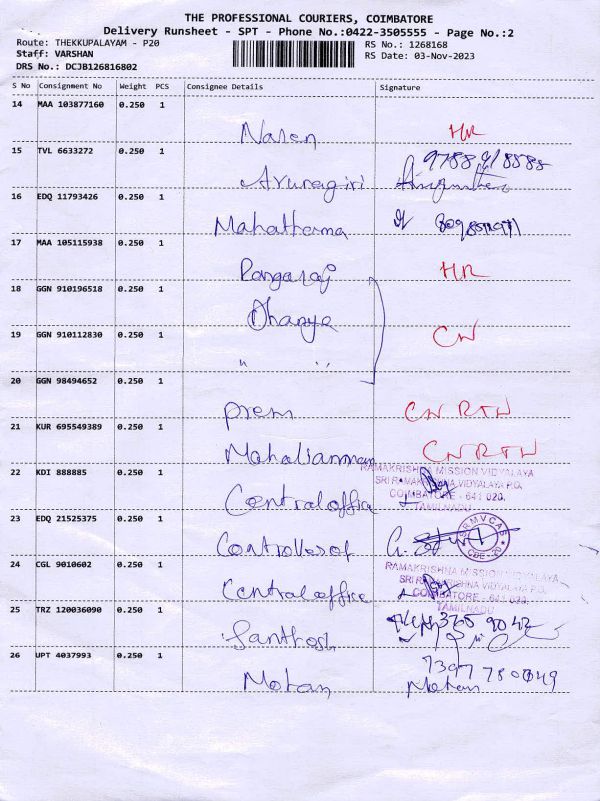 THE PROFESSIONAL COURIERS, COIMBATORE
Delivery Runsheet - SPT - Phone No.:0422-3505555 - Page No.:2
Route: THEKKUPALAYAM - P20
RS No.: 1268168
Staff: VARSHAN
RS Date: 03-Nov-2023
DRS No.: DCJB126816802
S No Consignment No Weight PCS Consignee Details Signature
14 MAA 103877160 0.250 1
Naren HR
15 TVL 6633272 0.250 1
Arunagiri
16 EDQ 11793426 0.250 1
Mahathma
17 MAA 105115938 0.250 1
Rangaraj HR
18 GGN 910196518 0.250 1
Dhanya
19 GGN 910112830 0.250 1
" " CN
20 GGN 98494652 0.250 1
Prem CN RTN
21 KUR 695549389 0.250 1
Mahaliamman CN RTN
22 KDI 888885 0.250 1
RAMAKRISHNA MISSION VIDYALAYA
SRI RAMAKRISHNA VIDYALAYA P.O.
COIMBATORE - 641 020.
TAMILNADU
Central office
23 EDQ 21525375 0.250 1
SRMVCAS
CBE-20
Controller of
24 CGL 9010602 0.250 1
RAMAKRISHNA MISSION VIDYALAYA
SRI RAMAKRISHNA VIDYALAYA P.O.
COIMBATORE - 641 020.
TAMILNADU
Central office
25 TRZ 120036090 0.250 1
Santhosh
26 UPT 4037993 0.250 1
Mohan Mohan